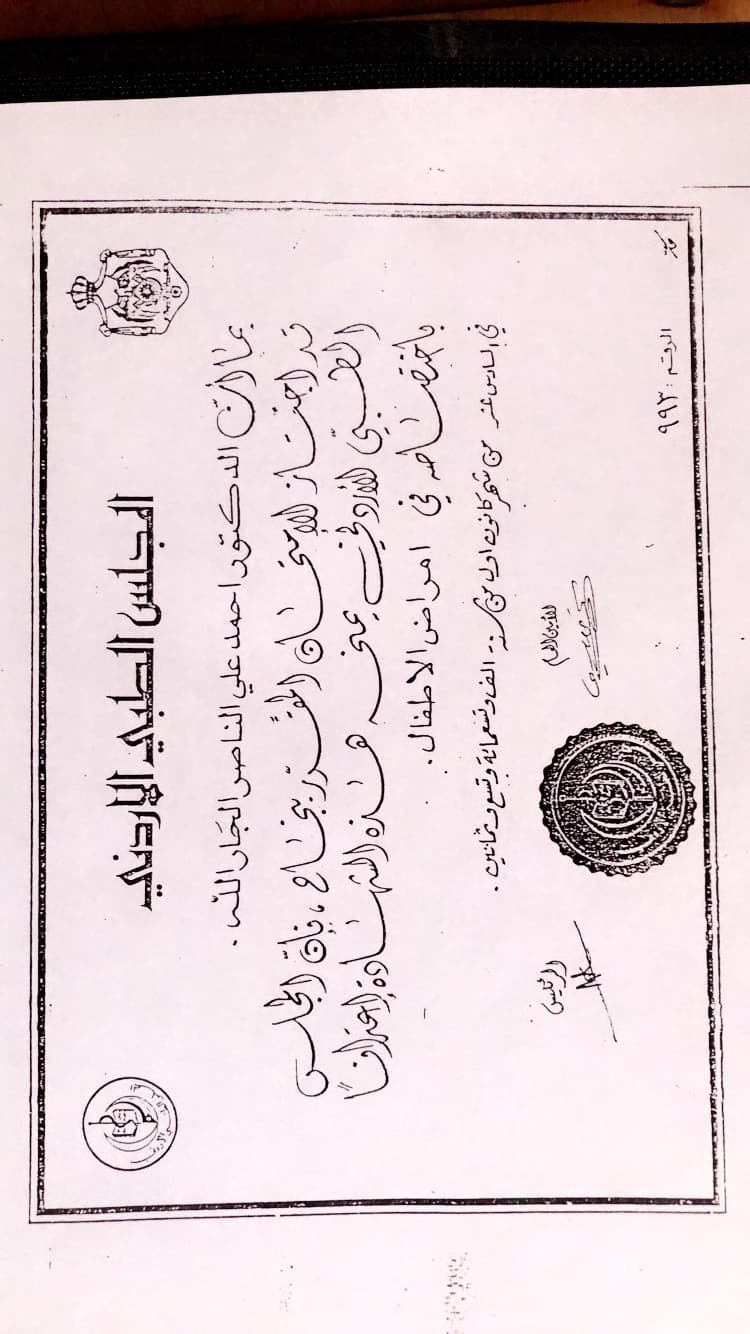 المجلس الطبي الأردني
بما أنّ الدكتور احمد علي الناصر الجار الله .
قد اجتاز الامتحان المقرّر بنجاح ، فإنّ المجلس
الطبّي الأردني يمنحه هذه الشهادة إعترافاً
باختصاصه في امراض الاطفال .
في السادس عشر من شهر كانون اول من سنة الف وتسعمائة وتسع وثمانين .
الأمين العام
الرئيس
الرقم : ٩٩٣